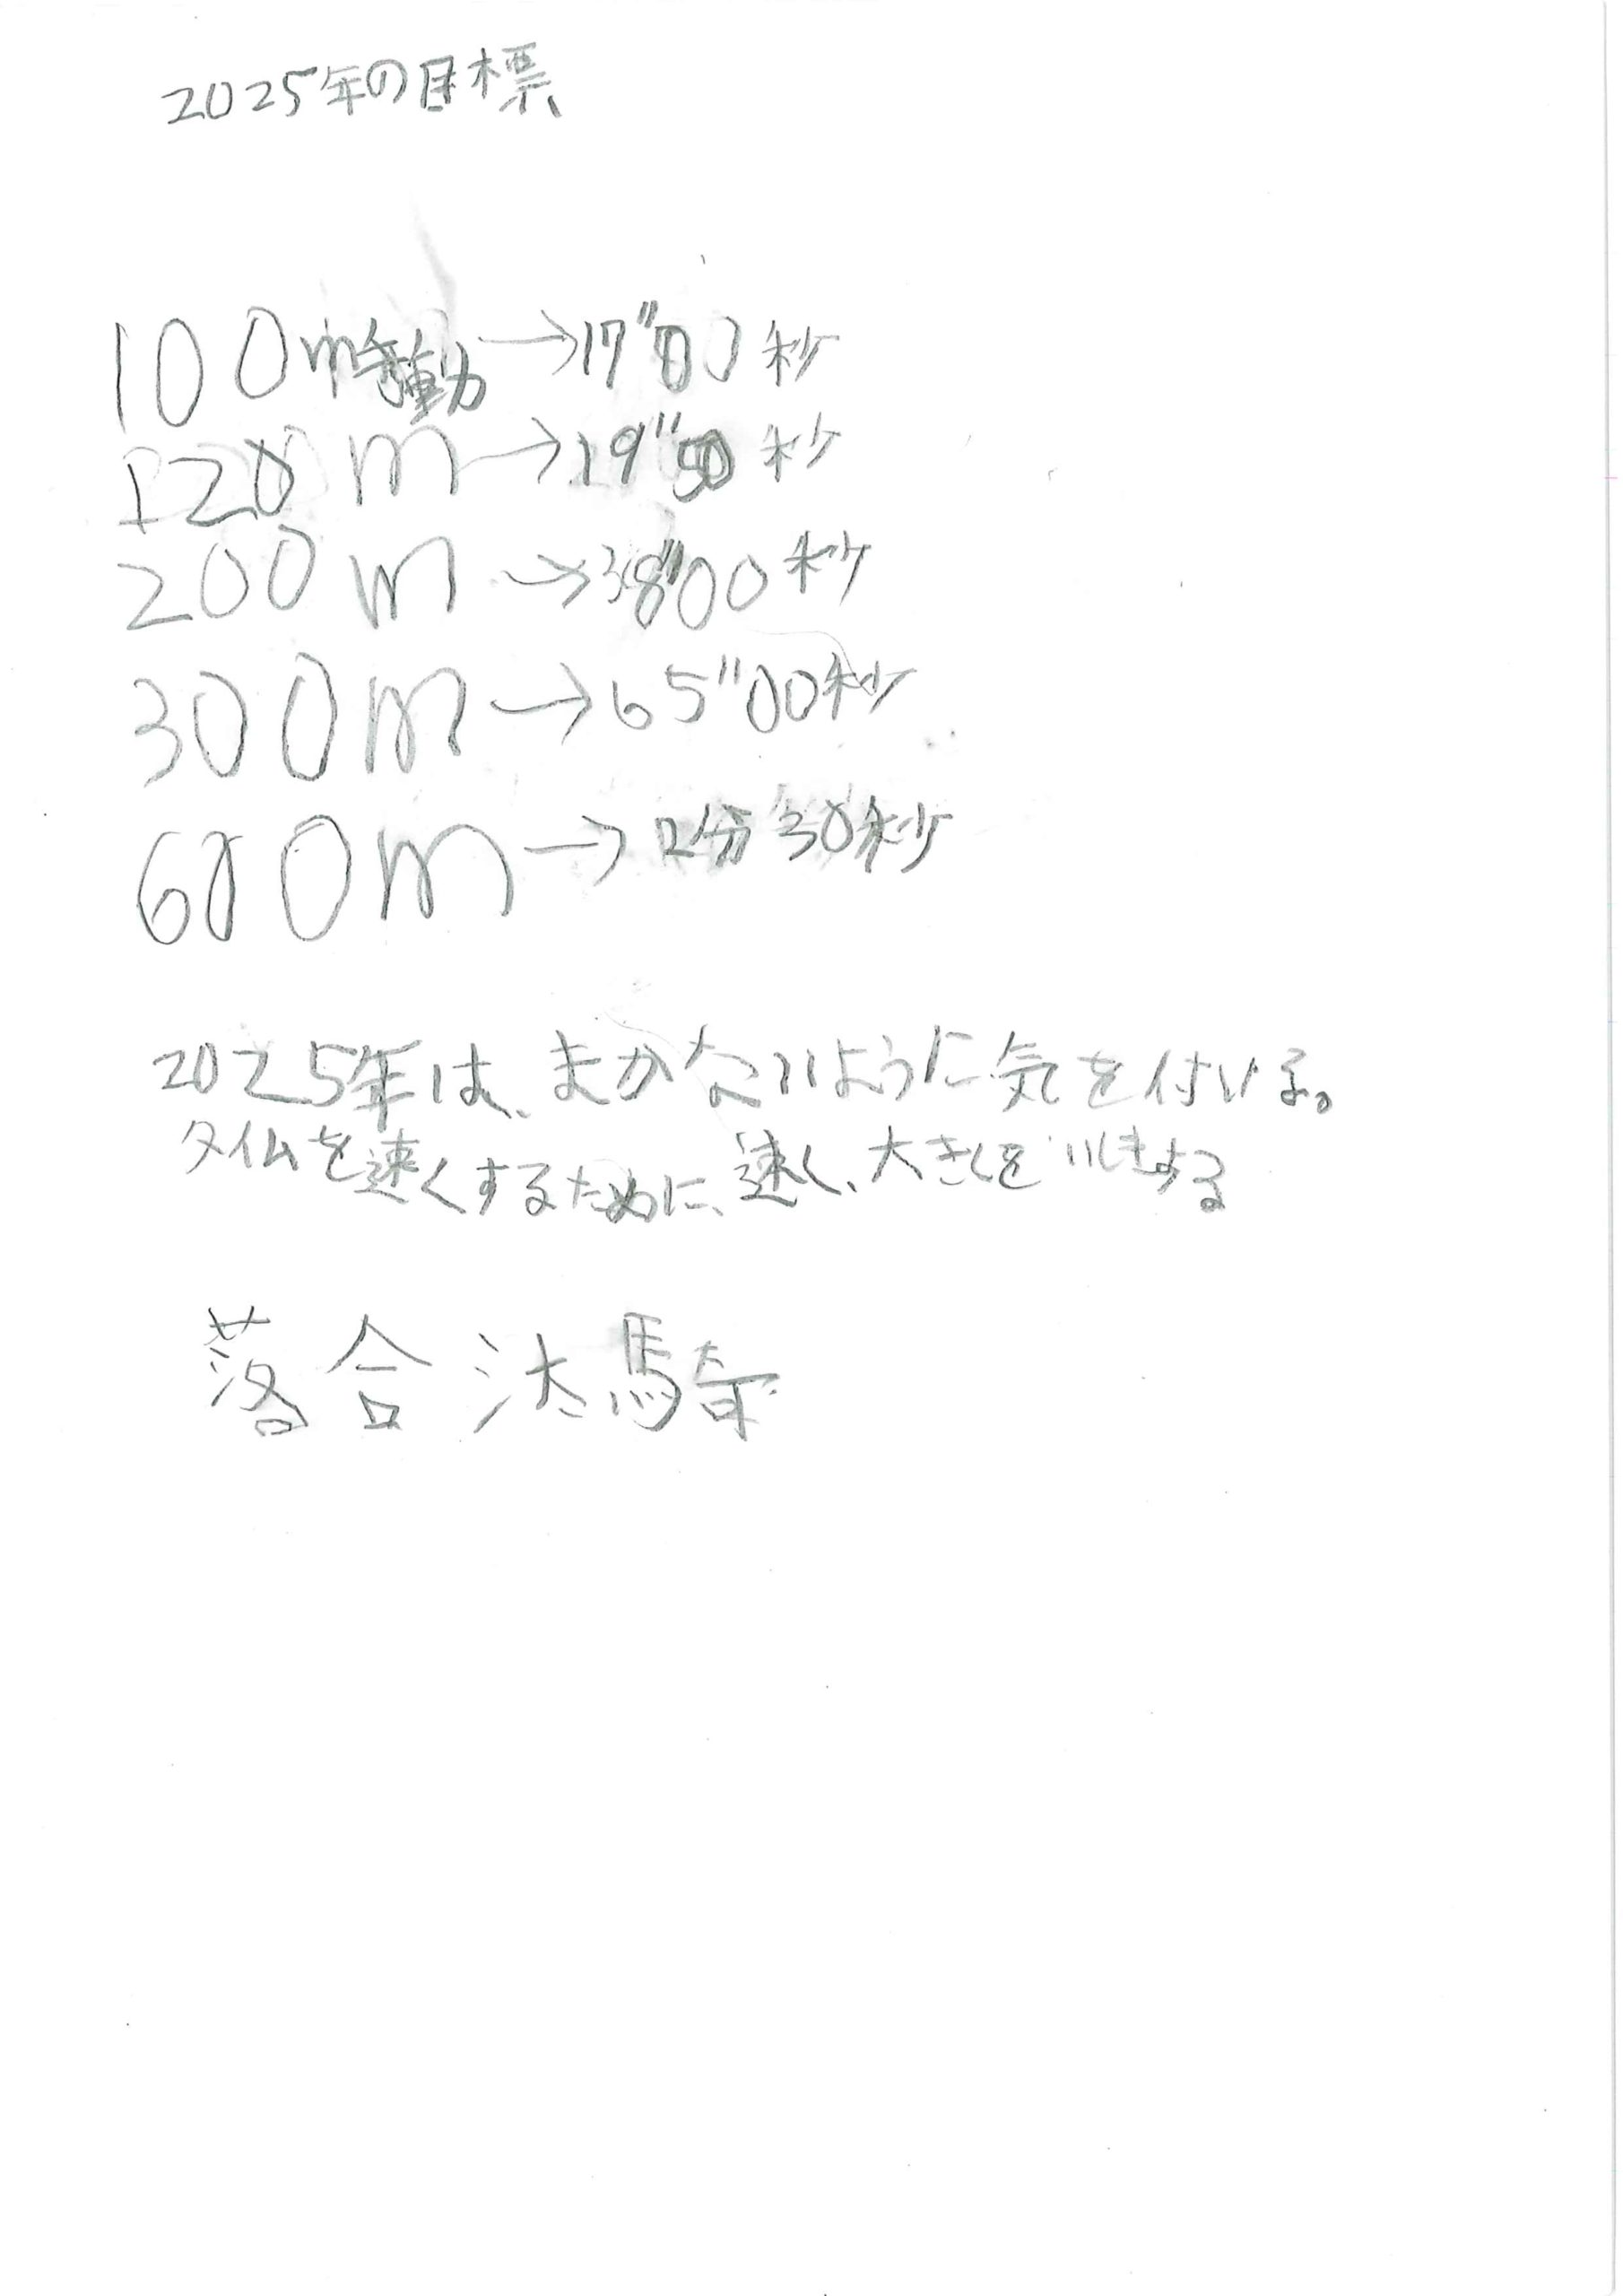 2025年の目標
100m手動→17"00秒
120m→19"50秒
200m→38"00秒
300m→65"00秒
600m→2分30秒
2025年は、まかないように気を付ける。
タイムを速くするために、速く、大きくを
落合汰騎